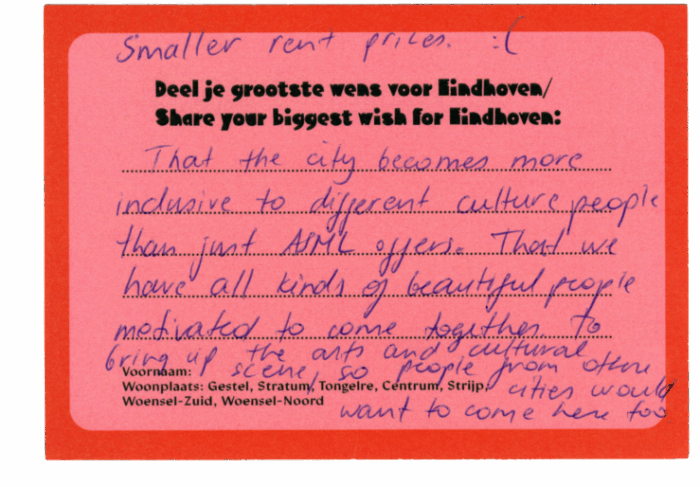 Smaller rent prices. :(
Deel je grootste wens voor Eindhoven/
Share your biggest wish for Eindhoven:
That the city becomes more
inclusive to different culture people
than just ASML offers. That we
have all kinds of beautiful people
motivated to come together to
bring up the arts and cultural
Voornaam: scene, so people from other
Woonplaats: Gestel, Stratum, Tongelre, Centrum, Strijp, cities would
Woensel-Zuid, Woensel-Noord want to come here too